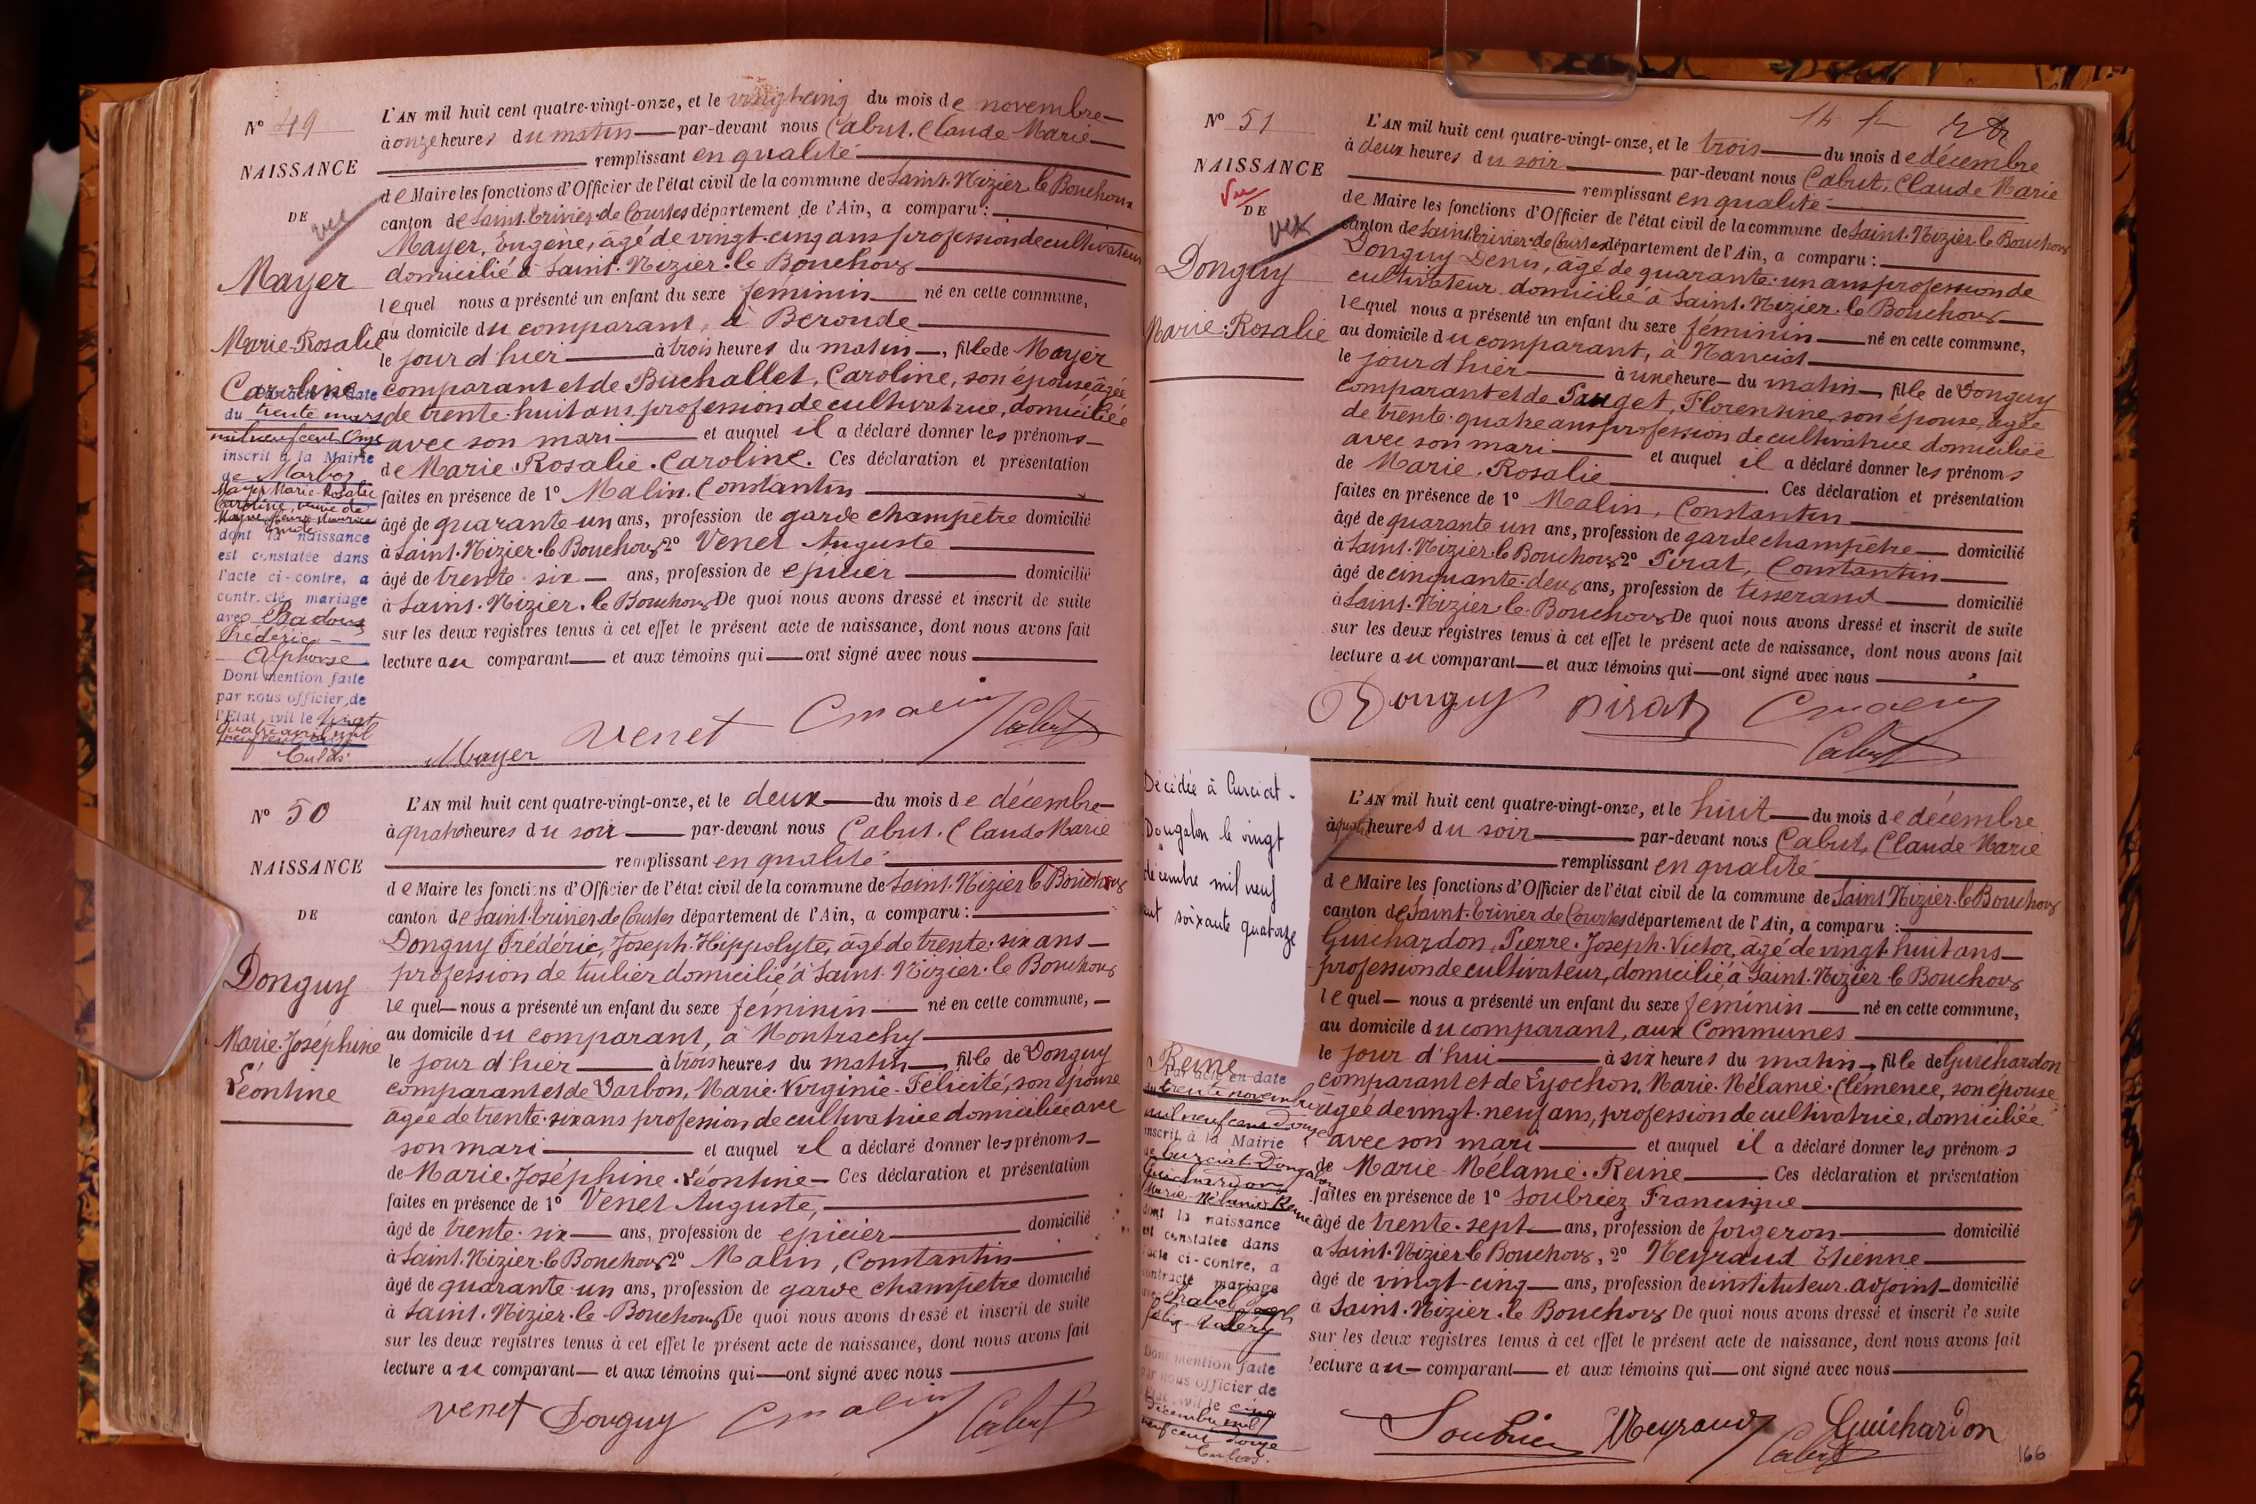 N° 49
NAISSANCE
DE
vu
Mayer
Marie-Rosalie
Caroline
Par acte en date
du trente mars
mil neuf cent onze
inscrit à la Mairie
de Marboz
Mayer Marie-Rosalie
Caroline, veuve de
dont la naissance
est constatée dans
l'acte ci-contre, a
contracté mariage
avec Badoux
Frédéric
Alphonse
Dont mention faite
par nous officier de
l'Etat civil le vingt
quatre avril mil
neuf cent
L'AN mil huit cent quatre-vingt-onze, et le vingt cinq du mois de novembre
à onze heures du matin par-devant nous Cabut, Claude Marie
remplissant en qualité
de Maire les fonctions d'Officier de l'état civil de la commune de Saint-Nizier-le-Bouchoux
canton de Saint-Trivier-de-Courtes département de l'Ain, a comparu :
Mayer, Eugène, âgé de vingt-cinq ans profession de cultivateur
domicilié à Saint-Nizier-le-Bouchoux
lequel nous a présenté un enfant du sexe féminin né en cette commune,
au domicile du comparant, à Beroude
le jour d'hier à trois heures du matin, fille de Mayer
comparant et de Buchallet, Caroline, son épouse âgée
de trente-huit ans profession de cultivatrice, domiciliée
avec son mari et auquel il a déclaré donner les prénoms
de Marie-Rosalie-Caroline. Ces déclaration et présentation
faites en présence de 1° Malin, Constantin
âgé de quarante-un ans, profession de garde champetre domicilié
à Saint-Nizier-le-Bouchoux 2° Venet Auguste
âgé de trente-six ans, profession de epicier domicilié
à Saint-Nizier-le-Bouchoux De quoi nous avons dressé et inscrit de suite
sur les deux registres tenus à cet effet le présent acte de naissance, dont nous avons fait
lecture au comparant et aux témoins qui ont signé avec nous
Mayer Venet C Malin Cabut
N° 50
NAISSANCE
DE
Donguy
Marie-Joséphine
Léontine
L'AN mil huit cent quatre-vingt-onze, et le deux du mois de décembre
à quatre heures du soir par-devant nous Cabut, Claude Marie
remplissant en qualité
de Maire les fonctions d'Officier de l'état civil de la commune de Saint-Nizier-le-Bouchoux
canton de Saint-Trivier-de-Courtes département de l'Ain, a comparu :
Donguy Frédéric, Joseph-Hippolyte, âgé de trente-six ans
profession de tuilier domicilié à Saint-Nizier-le-Bouchoux
lequel nous a présenté un enfant du sexe féminin né en cette commune,
au domicile du comparant, à Montrachy
le jour d'hier à trois heures du matin, fille de Donguy
comparant et de Varbon, Marie-Virginie-Félicité, son épouse
âgée de trente-six ans profession de cultivatrice domiciliée avec
son mari et auquel il a déclaré donner les prénoms
de Marie-Joséphine-Léontine Ces déclaration et présentation
faites en présence de 1° Venet Auguste,
âgé de trente-six ans, profession de epicier domicilié
à Saint-Nizier-le-Bouchoux 2° Malin, Constantin
âgé de quarante-un ans, profession de garde champetre domicilié
à Saint-Nizier-le-Bouchoux De quoi nous avons dressé et inscrit de suite
sur les deux registres tenus à cet effet le présent acte de naissance, dont nous avons fait
lecture au comparant et aux témoins qui ont signé avec nous
Venet Donguy C Malin Cabut
N° 51
NAISSANCE
Vu
DE
Donguy
Marie-Rosalie
L'AN mil huit cent quatre-vingt-onze, et le trois du mois de décembre
à deux heures du soir par-devant nous Cabut, Claude Marie
remplissant en qualité
de Maire les fonctions d'Officier de l'état civil de la commune de Saint-Nizier-le-Bouchoux
canton de Saint-Trivier-de-Courtes département de l'Ain, a comparu :
Donguy Denis, âgé de quarante-un ans profession de
cultivateur domicilié à Saint-Nizier-le-Bouchoux
lequel nous a présenté un enfant du sexe féminin né en cette commune,
au domicile du comparant, à Nanciat
le jour d'hier à une heure du matin, fille de Donguy
comparant et de Pauget, Florentine, son épouse, âgée
de trente-quatre ans profession de cultivatrice domiciliée
avec son mari et auquel il a déclaré donner les prénoms
de Marie-Rosalie. Ces déclaration et présentation
faites en présence de 1° Malin, Constantin
âgé de quarante un ans, profession de garde champêtre domicilié
à Saint-Nizier-le-Bouchoux 2° Pirat, Constantin
âgé de cinquante-deux ans, profession de tisserand domicilié
à Saint-Nizier-le-Bouchoux De quoi nous avons dressé et inscrit de suite
sur les deux registres tenus à cet effet le présent acte de naissance, dont nous avons fait
lecture au comparant et aux témoins qui ont signé avec nous
Donguy Pirat C Malin
Cabut
Décédée à Curciat-
Dongalon le vingt
décembre mil neuf
cent soixante quatorze
Reine
Par acte en date
du trente novembre
mil neuf cent douze
inscrit à la Mairie
de Curciat-Dongalon
Guichardon
Marie-Mélanie-Reine
dont la naissance
est constatée dans
l'acte ci-contre, a
contracté mariage
avec Chabel
Félix Valéry
Dont mention faite
par nous officier de
l'Etat civil le cinq
Décembre mil
neuf cent douze
L'AN mil huit cent quatre-vingt-onze, et le huit du mois de décembre
à quatre heures du soir par-devant nous Cabut, Claude Marie
remplissant en qualité
de Maire les fonctions d'Officier de l'état civil de la commune de Saint-Nizier-le-Bouchoux
canton de Saint-Trivier de Courtes département de l'Ain, a comparu :
Guichardon, Pierre-Joseph-Victor, âgé de vingt-huit ans
profession de cultivateur, domicilié, à Saint-Nizier-le-Bouchoux
lequel nous a présenté un enfant du sexe féminin né en cette commune,
au domicile du comparant, aux Communes
le jour d'hui à six heures du matin, fille de Guichardon
comparant et de Eyochon, Marie-Mélanie-Clémence, son épouse
âgée de vingt-neuf ans, profession de cultivatrice, domiciliée
avec son mari et auquel il a déclaré donner les prénoms
de Marie-Mélanie-Reine Ces déclaration et présentation
faites en présence de 1° Soubriez Francisque
âgé de trente-sept ans, profession de forgeron domicilié
à Saint-Nizier-le-Bouchoux, 2° Meyraud Etienne
âgé de vingt-cinq ans, profession de instituteur adjoint domicilié
à Saint-Nizier-le-Bouchoux De quoi nous avons dressé et inscrit de suite
sur les deux registres tenus à cet effet le présent acte de naissance, dont nous avons fait
lecture au comparant et aux témoins qui ont signé avec nous
Soubriez Meyraud Guichardon
Cabut
166